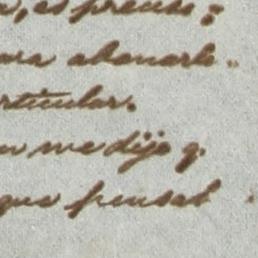 , es preciso
ara abonarle
rticular.
me dijo q.
que pensab